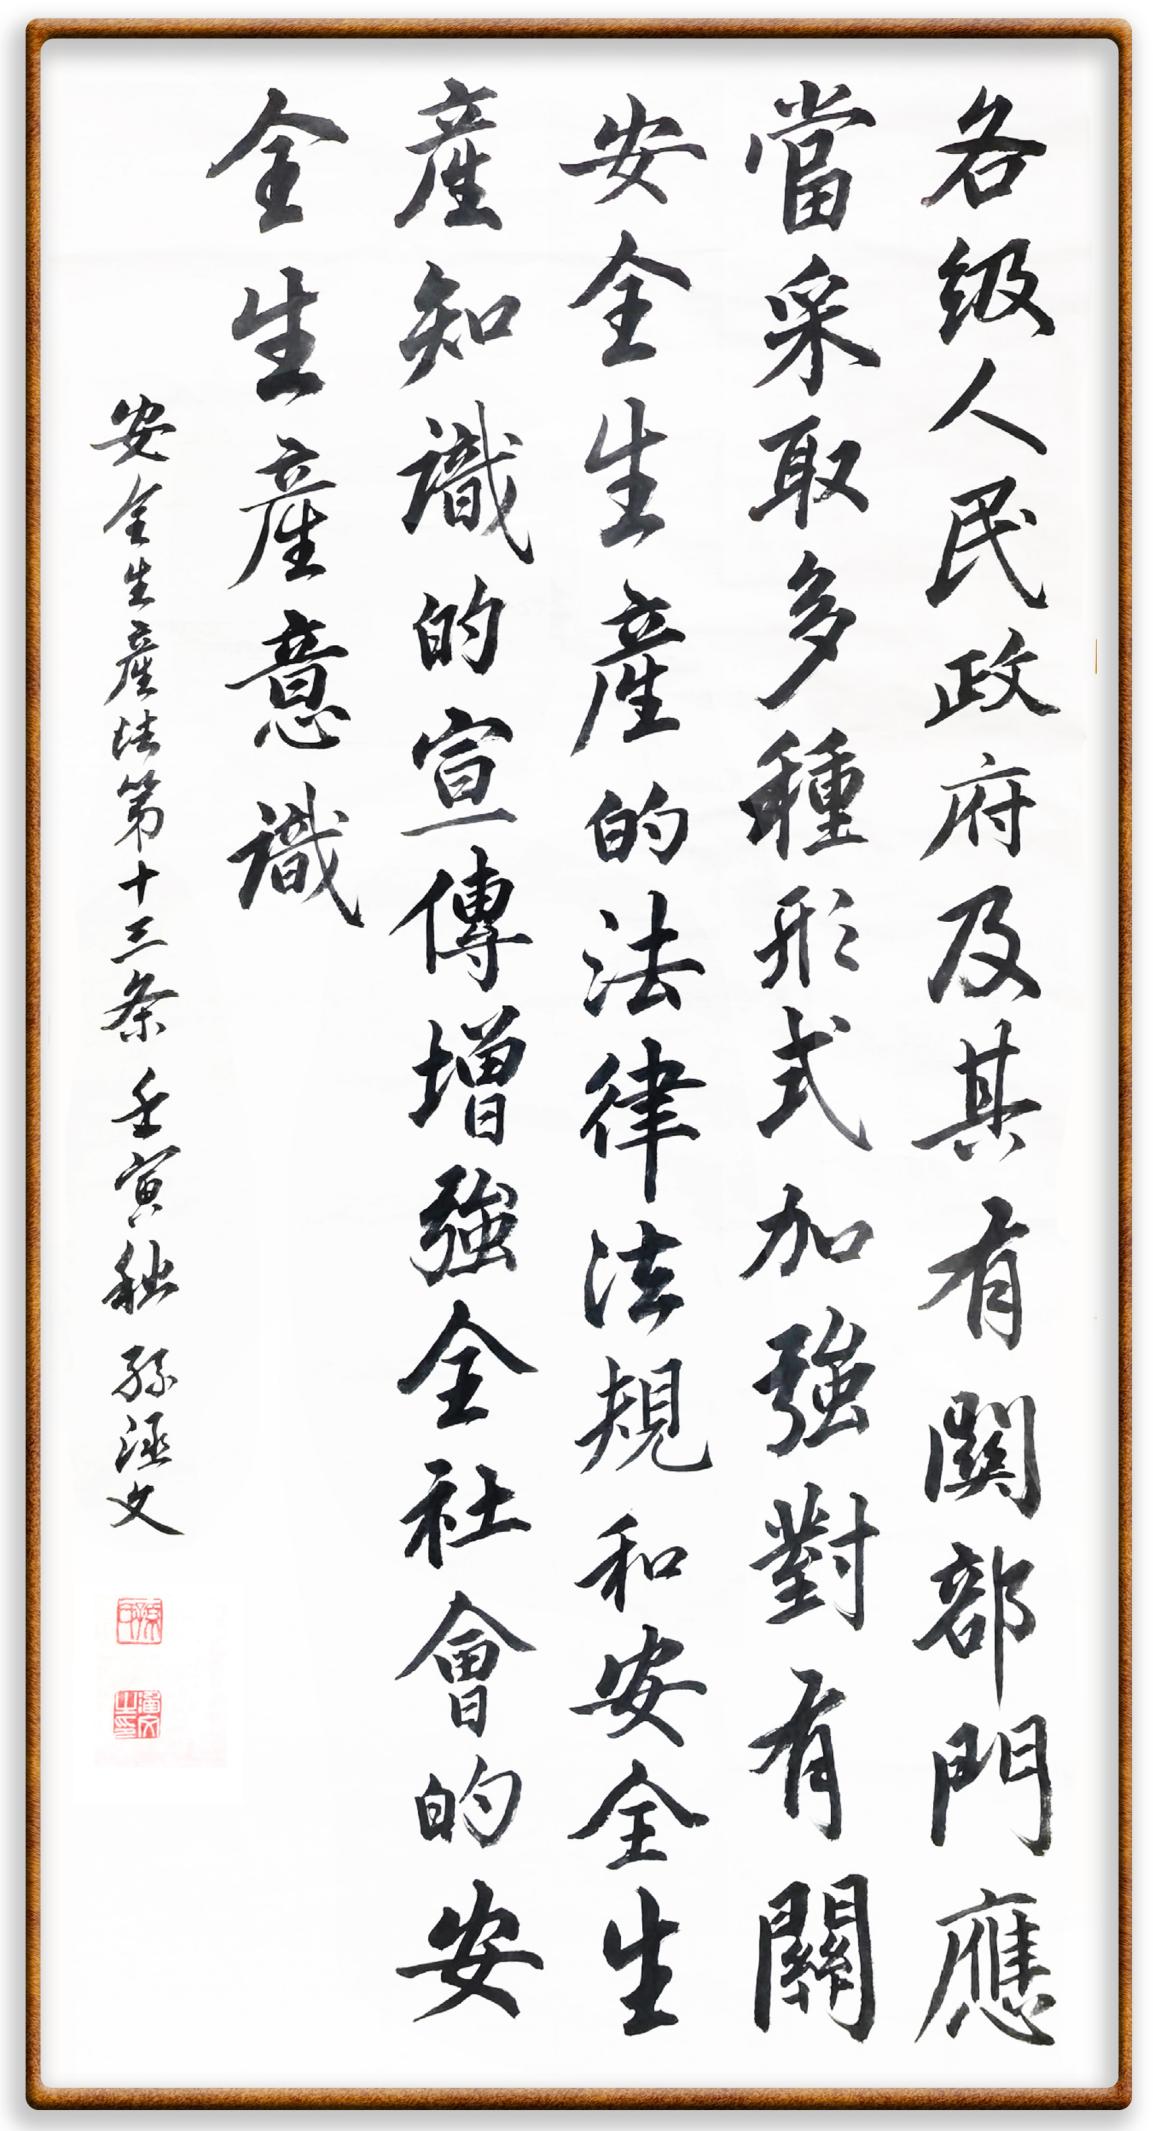 各级人民政府及其有関部門應
當采取多種形式加強對有關
安全生產的法律法規和安全生
產知識的宣傳增強全社會的安
全生產意識
安全生產法第十三条 壬寅秋 孫涵文